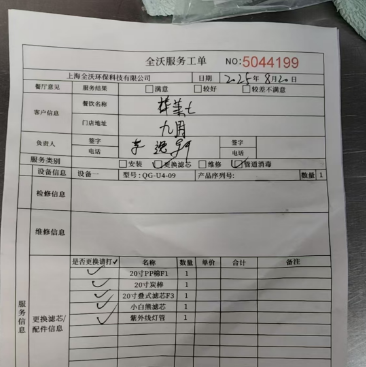 全沃服务工单 NO:5044199
上海全沃环保科技有限公司 日期 2025年8月20日
餐厅意见 服务结果 □满意 □较好 □较差不满意
客户信息 餐饮名称
门店地址 九月
负责人 签字 签字
电话 电话
服务类别 □安装 ☑更换滤芯 □维修 ☑管道消毒
设备信息 设备一 型号:QG-U4-09 产品序列号: 数量 1
检修信息
维修信息
服务信息 更换滤芯/配件信息
是否更换请打✓ 名称 数量 单价 合计 备注
✓ 20寸PP棉F1 1
✓ 20寸炭棒 1
✓ 20寸叠式滤芯F3 1
✓ 小白熊滤芯 1
✓ 紫外线灯管 1